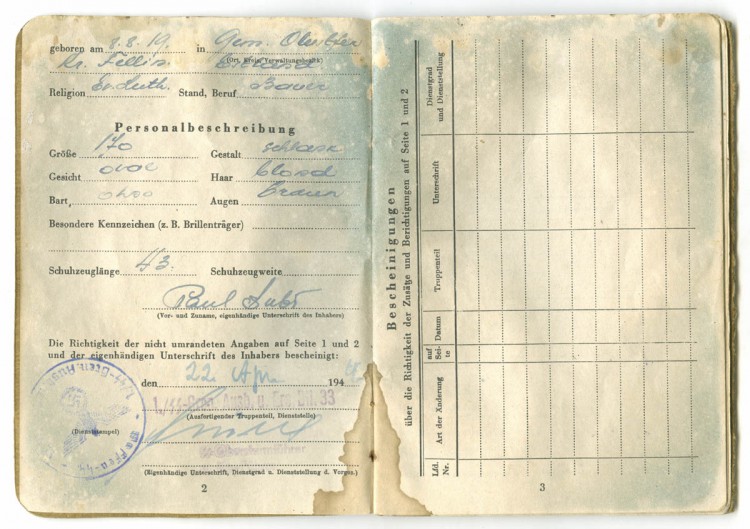 geboren am 8.8.19. in Gem.
(Ort, Kreis, Verwaltungsbezirk)
Kr. Fellin Estland
Religion Ev. Luth. Stand, Beruf Bauer
Personalbeschreibung
Größe 170 Gestalt schlank
Gesicht oval Haar blond
Bart ohne Augen braun
Besondere Kennzeichen (z. B. Brillenträger)
Schuhzeuglänge 43. Schuhzeugweite
Paul
(Vor- und Zuname, eigenhändige Unterschrift des Inhabers)
Die Richtigkeit der nicht umrandeten Angaben auf Seite 1 und 2
und der eigenhändigen Unterschrift des Inhabers bescheinigt:
den 22. Apr. 194
(Ausfertigender Truppenteil, Dienststelle)
(Dienststempel)
(Eigenhändige Unterschrift, Dienstgrad u. Dienststellung d. Vorges.)
2
Bescheinigungen
über die Richtigkeit der Zusätze und Berichtigungen auf Seite 1 und 2
Lfd. Nr.
Art der Änderung
auf Sei-te
Datum
Truppenteil
Unterschrift
Dienstgrad
und Dienststellung
3